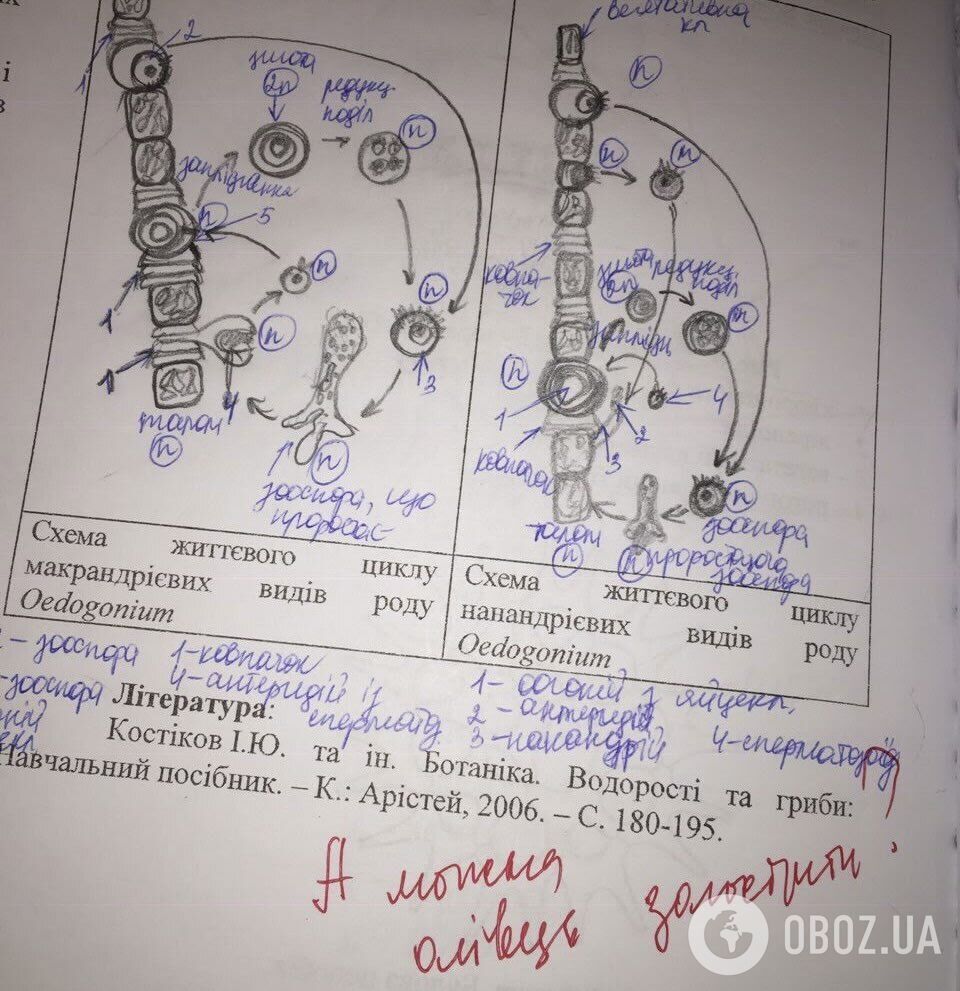 их
і
в
вегетативна
кл
2
n
1
зигота
2n
редукц.
поділ
n
запліднення
n
5
n
n
1
n
1
3
4
талом
n
n
зооспора, що
проростає
n
n
ковпа-
чок
зигота
2n
редукц.
поділ
n
заплідн
n
4
1
2
3
ковпачок
n
талом
n
зооспора
n
проростаюча
зооспора
Схема життєвого циклу
макрандрієвих видів роду
Oedogonium
Схема життєвого циклу
нанандрієвих видів роду
Oedogonium
– зооспора 1-ковпачок
-зооспора 4-антеридій із
сперматозоїд
1- оогоній з яйцекл.
2 - антеридій
3-нанандрій 4-сперматозоїд
Література:
Костіков І.Ю. та ін. Ботаніка. Водорості та гриби:
Навчальний посібник. – К.: Арістей, 2006. – С. 180-195.
А можна
олівець заострити
OBOZ.UA